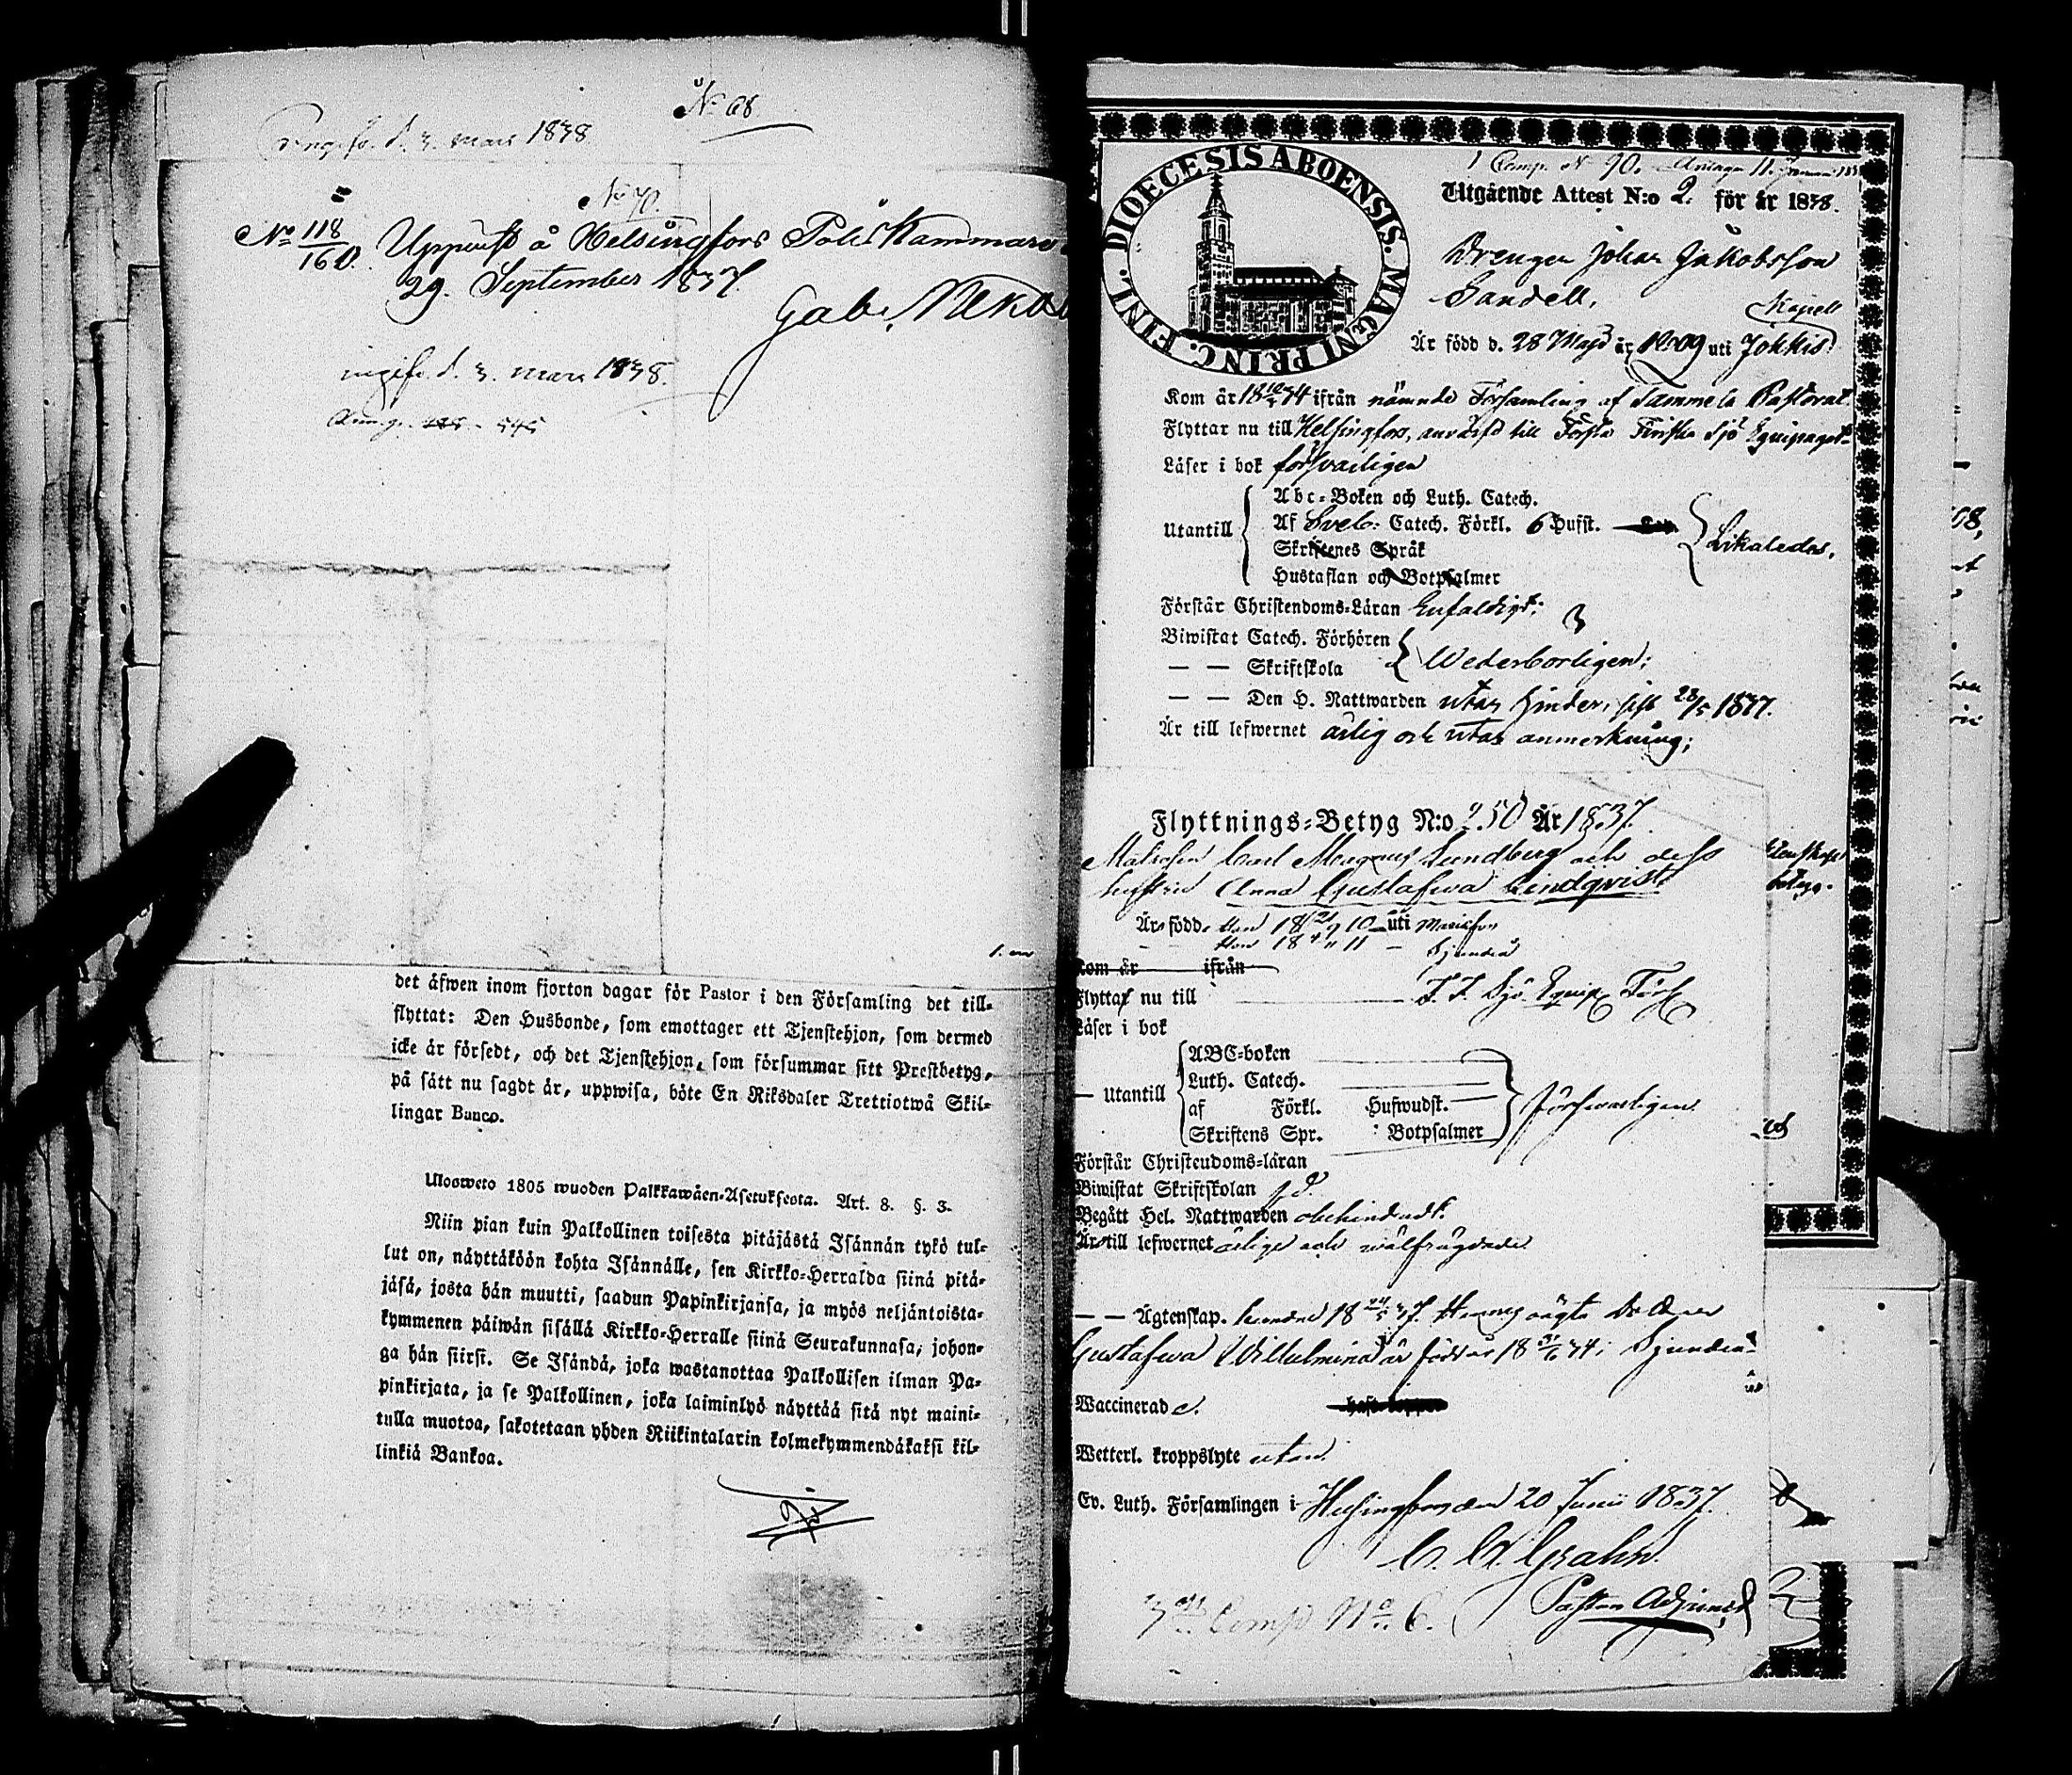 N:o 68.
d. 3. mars 1838.
N:o 70.
N:o 118/160. Uppvist å Helsingfors Polis Kammare
29. September 1837.
Gab.
d. 3. mars 1838.
det äfwen inom fjorton dagar för Pastor i den Församling det till-
flyttat: Den Husbonde, som emottager ett Tjenstehjon, som dermed
icke är försedt, och det Tjenstehjon, som försummar sitt Prestbetyg,
på sätt nu sagdt är, uppwisa, böte En Riksdaler Trettiotwå Skil-
lingar Banco.
Ulosweto 1805 wuoden Palkkawäen-Asetuksesta. Art. 8. §. 3.
Niin pian kuin Palkollinen toisesta pitäjästä Isännän tykö tul-
lut on, näyttäköön kohta Isännälle, sen Kirkko-Herralda siinä pitä-
jäsä, josta hän muutti, saadun Papinkirjansa, ja myös neljäntoista-
kymmenen päiwän sisällä Kirkko-Herralle siinä Seurakunnasa, johon-
ga hän siirsi. Se Isändä, joka wastanottaa Palkollisen ilman Pa-
pinkirjata, ja se Palkollinen, joka laiminlyö näyttää sitä nyt maini-
tulla muotoa, sakotetaan yhden Riikintalarin kolmekymmendäkaksi kil-
linkiä Bankoa.
FINL. DIOECESIS ABOENSIS. MAGNI PRINC.
1 Comp. N 90.
Utgående Attest N:o 2. för år 1838.
Drengen Johan Jakobsson
Sandell,
Kapell
Är född d. 28 Maji år 1809 uti Jokkis
Kom år 18 34 ifrån nämnde Församling af Tammela Pastorat.
Flyttar nu till Helsingfors, anvärfd till Första Finska Sjö Equipaget.
Läser i bok försvarligen
Utantill
Abc-Boken och Luth. Catech.
Af Sveb: Catech. Förkl. 6 Hufst.
Skriftenes Språk
Hustaflan och Botpsalmer
Likaledes.
Förstår Christendoms-Läran Enfaldigt;
Biwistat Catech. Förhören
— — Skriftskola
Wederborligen;
— — Den H. Nattwarden utan hinder, sist 28/5 1837.
Är till lefwernet ärlig och utan anmerkning;
Flyttnings-Betyg N:o 250 År 1837.
Matrosen Carl Magnus Lundberg och dess
hustru Anna Gustafwa Lindqvist
Är född, Han 18 10 uti
Hon 18 11 — Sjundeå
Kom år ifrån
Flyttar nu till — F. F. Sjö Equip Förs
Läser i bok
— Utantill
ABC-boken
Luth. Catech.
af Förkl. Hufwudst.
Skriftens Spr. Botpsalmer
försvarligen.
Förstår Christendoms-läran
Biwistat Skriftskolan
Begått Hel. Nattwarden obehindradt.
Är till lefwernet ärlige och wälfrägdade
— — Ägtenskap.
Gustafwa Wilhelmina är född år 18 34 i Sjundeå
Waccinerad
Wetterl. kroppslyte utan.
Ev. Luth. Församlingen i Helsingfors den 20 Junii 1837.
Grahn.
Pastors Adjunct
Comp N:o 6.